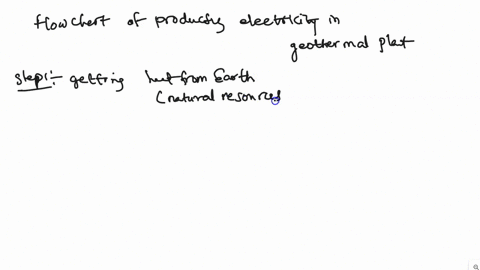 flowchart of producing electricity in
geothermal plat
Step1:- getting heat from Earth
(natural resources